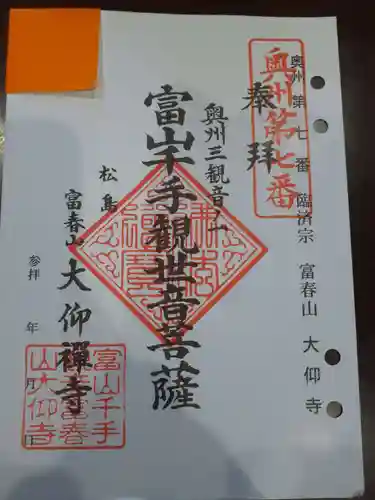 奥州第七番 臨済宗 富春山 大仰寺
奥州第七番
奉拝
奥州三観音ノ一
富山千手観世音菩薩
松島
富春山 大仰禪寺
参拝 年 月 日
富山千手
富春
山大仰寺